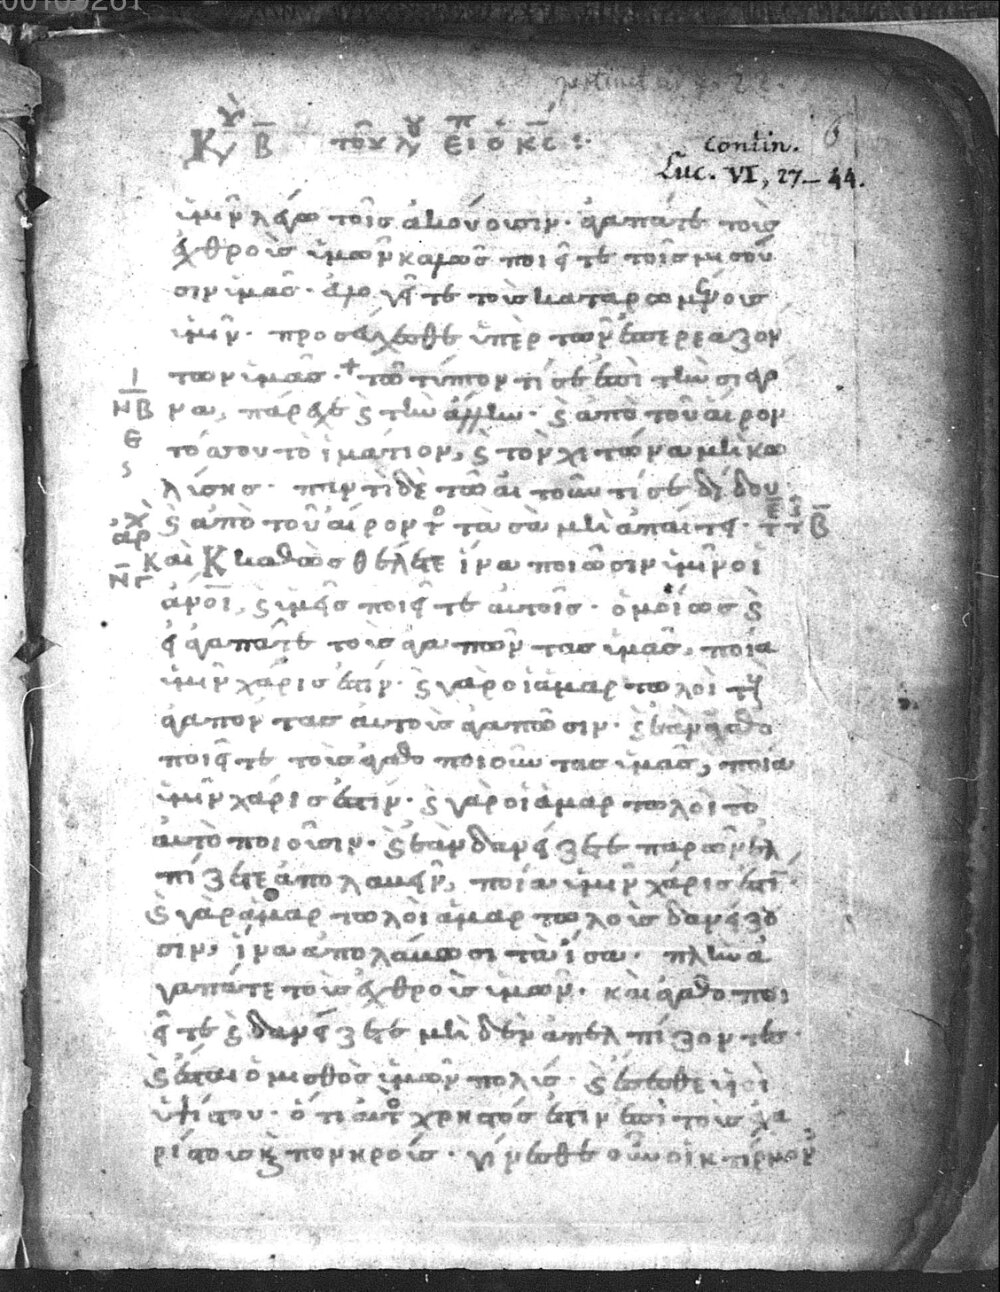 00109261
Κυ Β τοῦ λυ ειπ ὁ κς :
contin.
Luc. VI, 27–44.
6
ὑμῖν λέγω τοῖς ἀκούουσιν· ἀγαπᾶτε τοὺς
ἐχθροὺς ὑμῶν καλῶς ποιεῖτε τοῖς μισοῦ
σιν ὑμᾶς· εὐλογεῖτε τοὺς καταρωμένους
ὑμῖν· προσεύχεσθε ὑπὲρ τῶν ἐπερεαζόν
των ὑμᾶς·+ τῶ τύπτοντί σε ἐπὶ τὴν σιαγό
να, πάρεχε ϛ τὴν ἄλλην· ϛ ἀπὸ τοῦ αἴρον
τός σου τὸ ἱμάτιον, ϛ τὸν χιτῶνα μὴ κω
λύσης· παντὶ δὲ τῶ αἰτοῦντί σε δίδου
ϛ ἀπὸ τοῦ αἴροντος τὰ σὰ μὴ ἀπαίτει·
Καὶ καθὼς θέλετε ἵνα ποιῶσιν ὑμῖν οἱ
ἄνοι, ϛ ὑμεῖς ποιεῖτε αὐτοῖς· ὁμοίως ϛ
εἰ ἀγαπᾶτε τοὺς ἀγαπῶντας ὑμᾶς, ποία
ὑμῖν χάρις ἐστίν· ϛ γὰρ οἱ ἁμαρτωλοὶ τοὺς
ἀγαπόντας αὐτοὺς ἀγαπῶσιν· ϛ ἐὰν ἀγαθο
ποιεῖτε τοὺς ἀγαθοποιοῦντας ὑμᾶς, ποία
ὑμῖν χάρις ἐστίν· ϛ γὰρ οἱ ἁμαρτωλοὶ τὸ
αὐτὸ ποιοῦσιν· ϛ ἐὰν δανείζετε παρ' ὧν ἐλ
πίζετε ἀπολαβεῖν, ποία ὑμῖν χάρις ἐστί·
ϛ γὰρ ἁμαρτωλοὶ ἁμαρτωλοῖς δανείζου
σιν, ἵνα ἀπολάβωσι τὰ ἴσα· πλὴν ἀ
γαπᾶτε τοὺς ἐχθροὺς ὑμῶν· καὶ ἀγαθοποι
εῖτε ϛ δανείζετε μὴ δὲν ἀπελπίζοντες·
ϛ ἔσται ὁ μισθὸς ὑμῶν πολύς· ϛ ἔσεσθε υἱοὶ
ὑψίστου· ὅτι αὐτὸς χρηστός ἐστιν ἐπὶ τοὺς ἀχα
ρίστους κ πονηρούς· γίνεσθε οὖν οἰκτίρμον